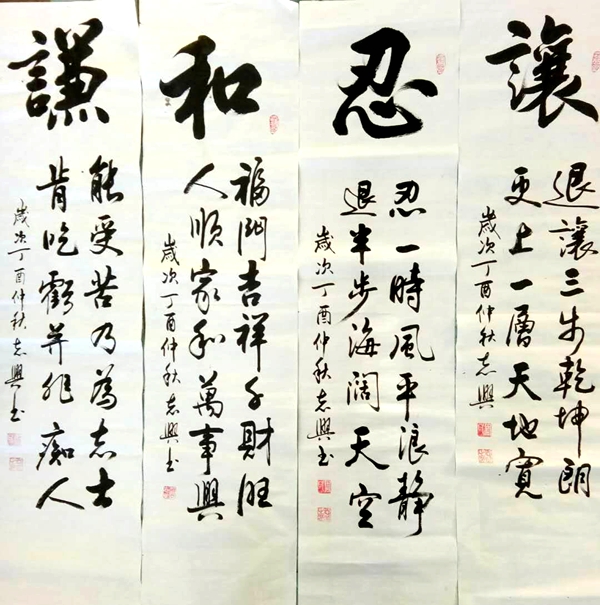 讓
退讓三步乾坤朗
更上一層天地寬
歲次丁酉仲秋志興
忍
忍一時風平浪靜
退半步海闊天空
歲次丁酉仲秋志興书
和
福門吉祥子財旺
人順家和萬事興
歲次丁酉仲秋志興书
謙
能受苦乃為志士
肯吃虧并非痴人
歲次丁酉仲秋志興书